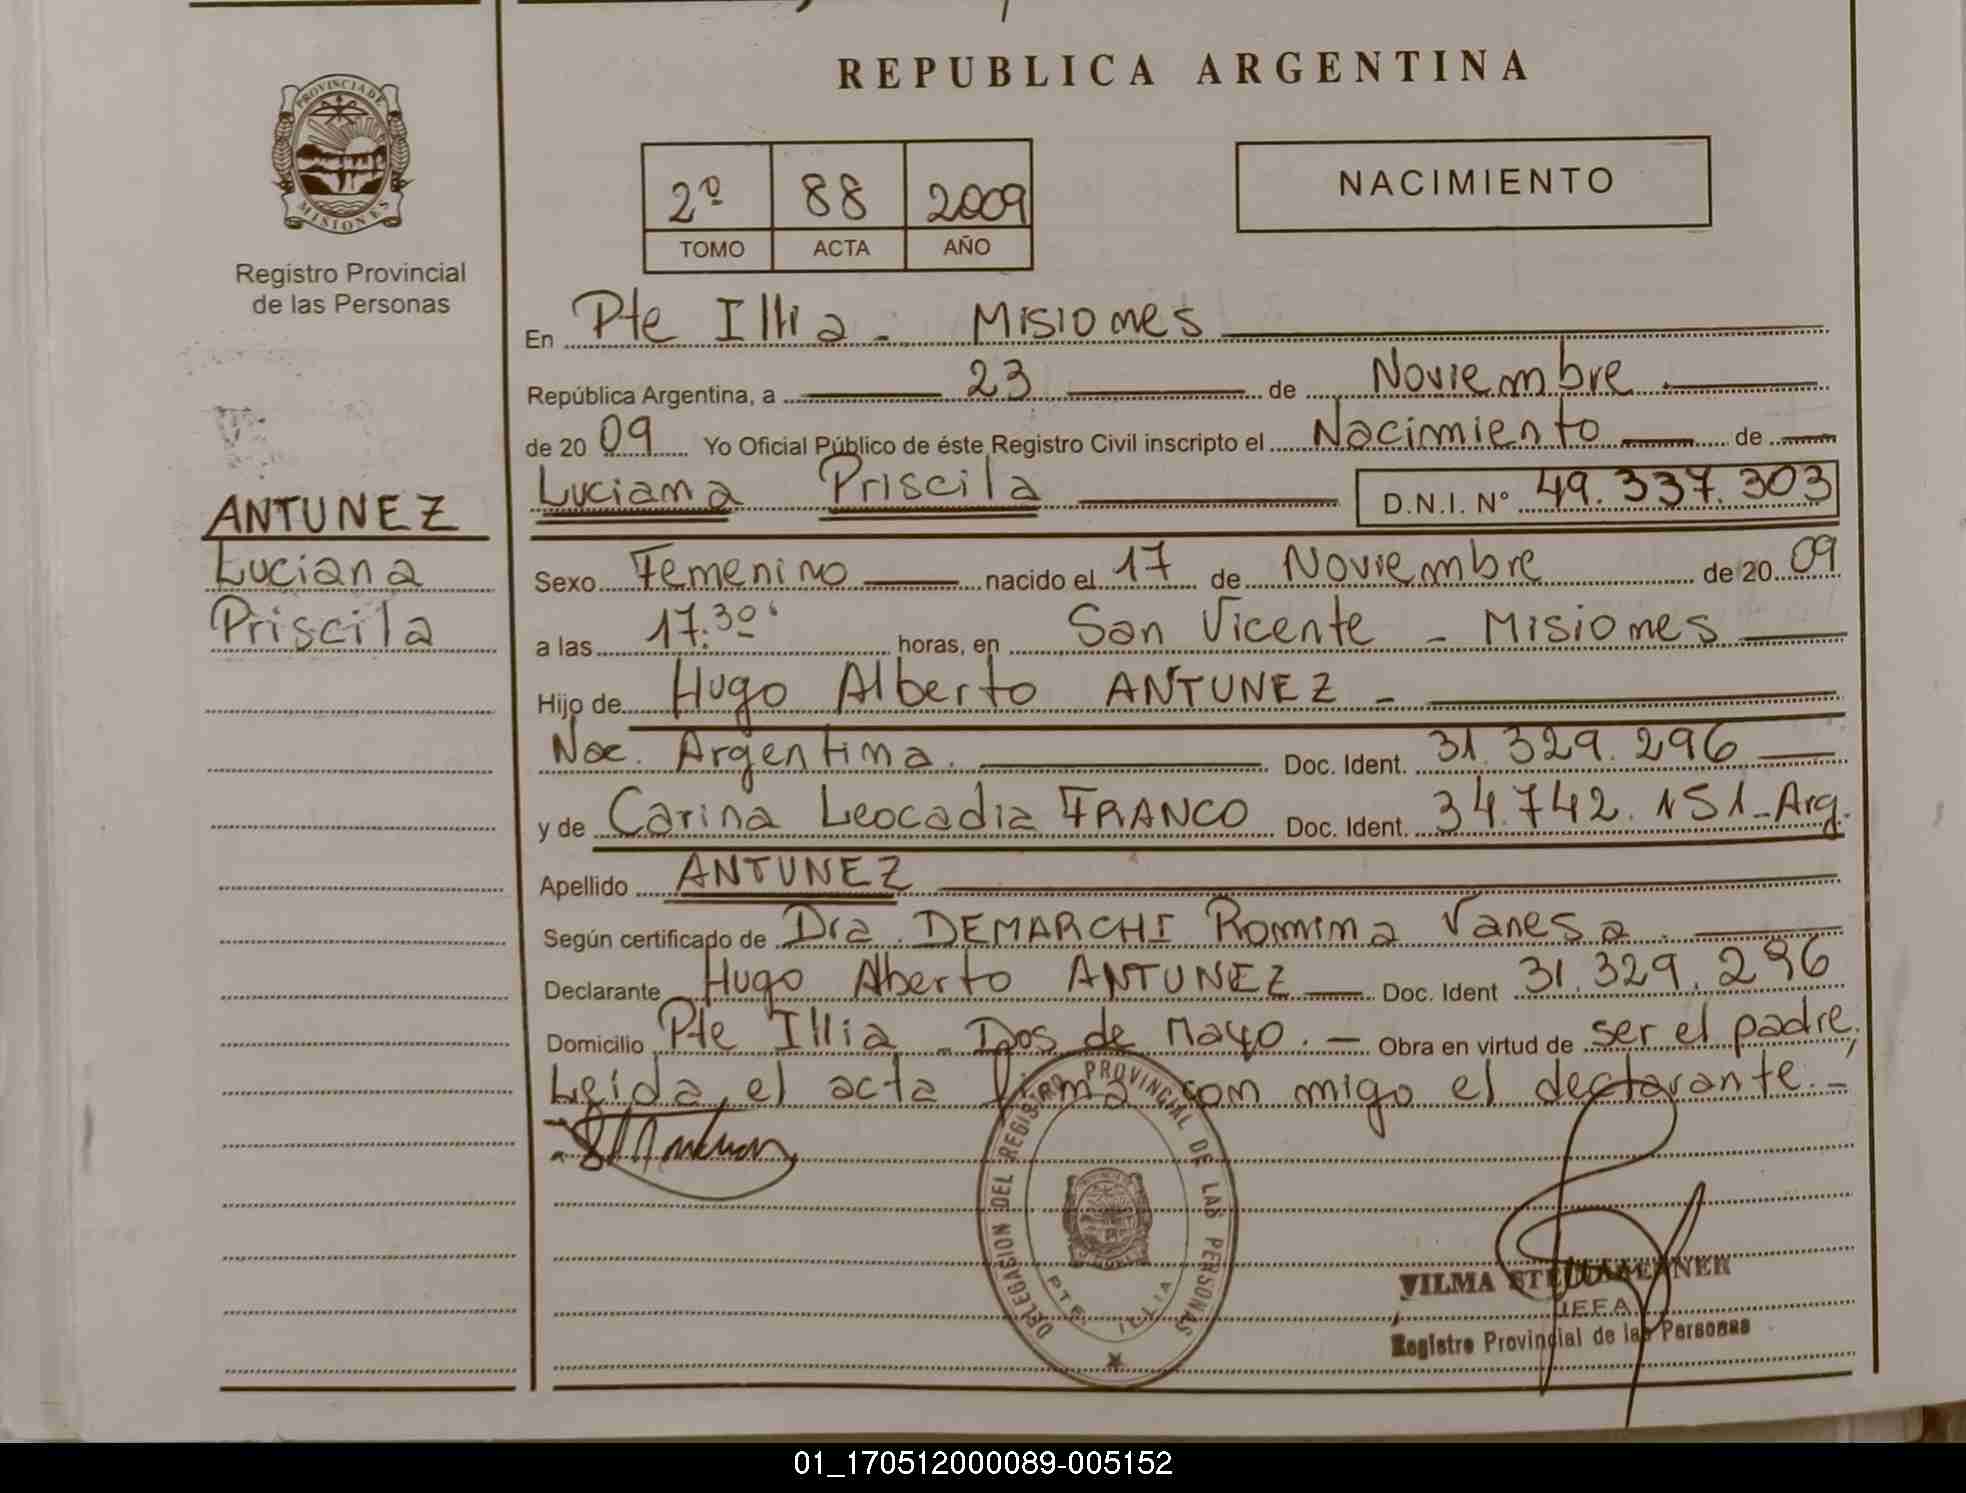 REPUBLICA ARGENTINA
PROVINCIA DE MISIONES
Registro Provincial
de las Personas
2º 88 2009
TOMO ACTA AÑO
NACIMIENTO
En Pte Illia - Misiones
República Argentina, a 23 de Noviembre
de 20 09 Yo Oficial Público de éste Registro Civil inscripto el Nacimiento de
Luciana Priscila D.N.I. Nº 49.337.303
ANTUNEZ
Luciana
Priscila
Sexo Femenino nacido el 17 de Noviembre de 20 09
a las 17:30' horas, en San Vicente - Misiones
Hijo de Hugo Alberto ANTUNEZ -
Nac. Argentina. Doc. Ident. 31.329.296
y de Carina Leocadia FRANCO Doc. Ident. 34.742.151-Arg.
Apellido ANTUNEZ
Según certificado de Dra. DEMARCHI Romina Vanesa.
Declarante Hugo Alberto ANTUNEZ Doc. Ident 31.329.296
Domicilio Pte Illia - Dos de Mayo. - Obra en virtud de ser el padre,
Leída, el acta firma con migo el declarante. -
DELEGASION DEL REGISTRO PROVINCIAL DE LAS PERSONAS
PTE. ILLIA
VILMA
JEFA
Registro Provincial de las Personas
01_170512000089-005152